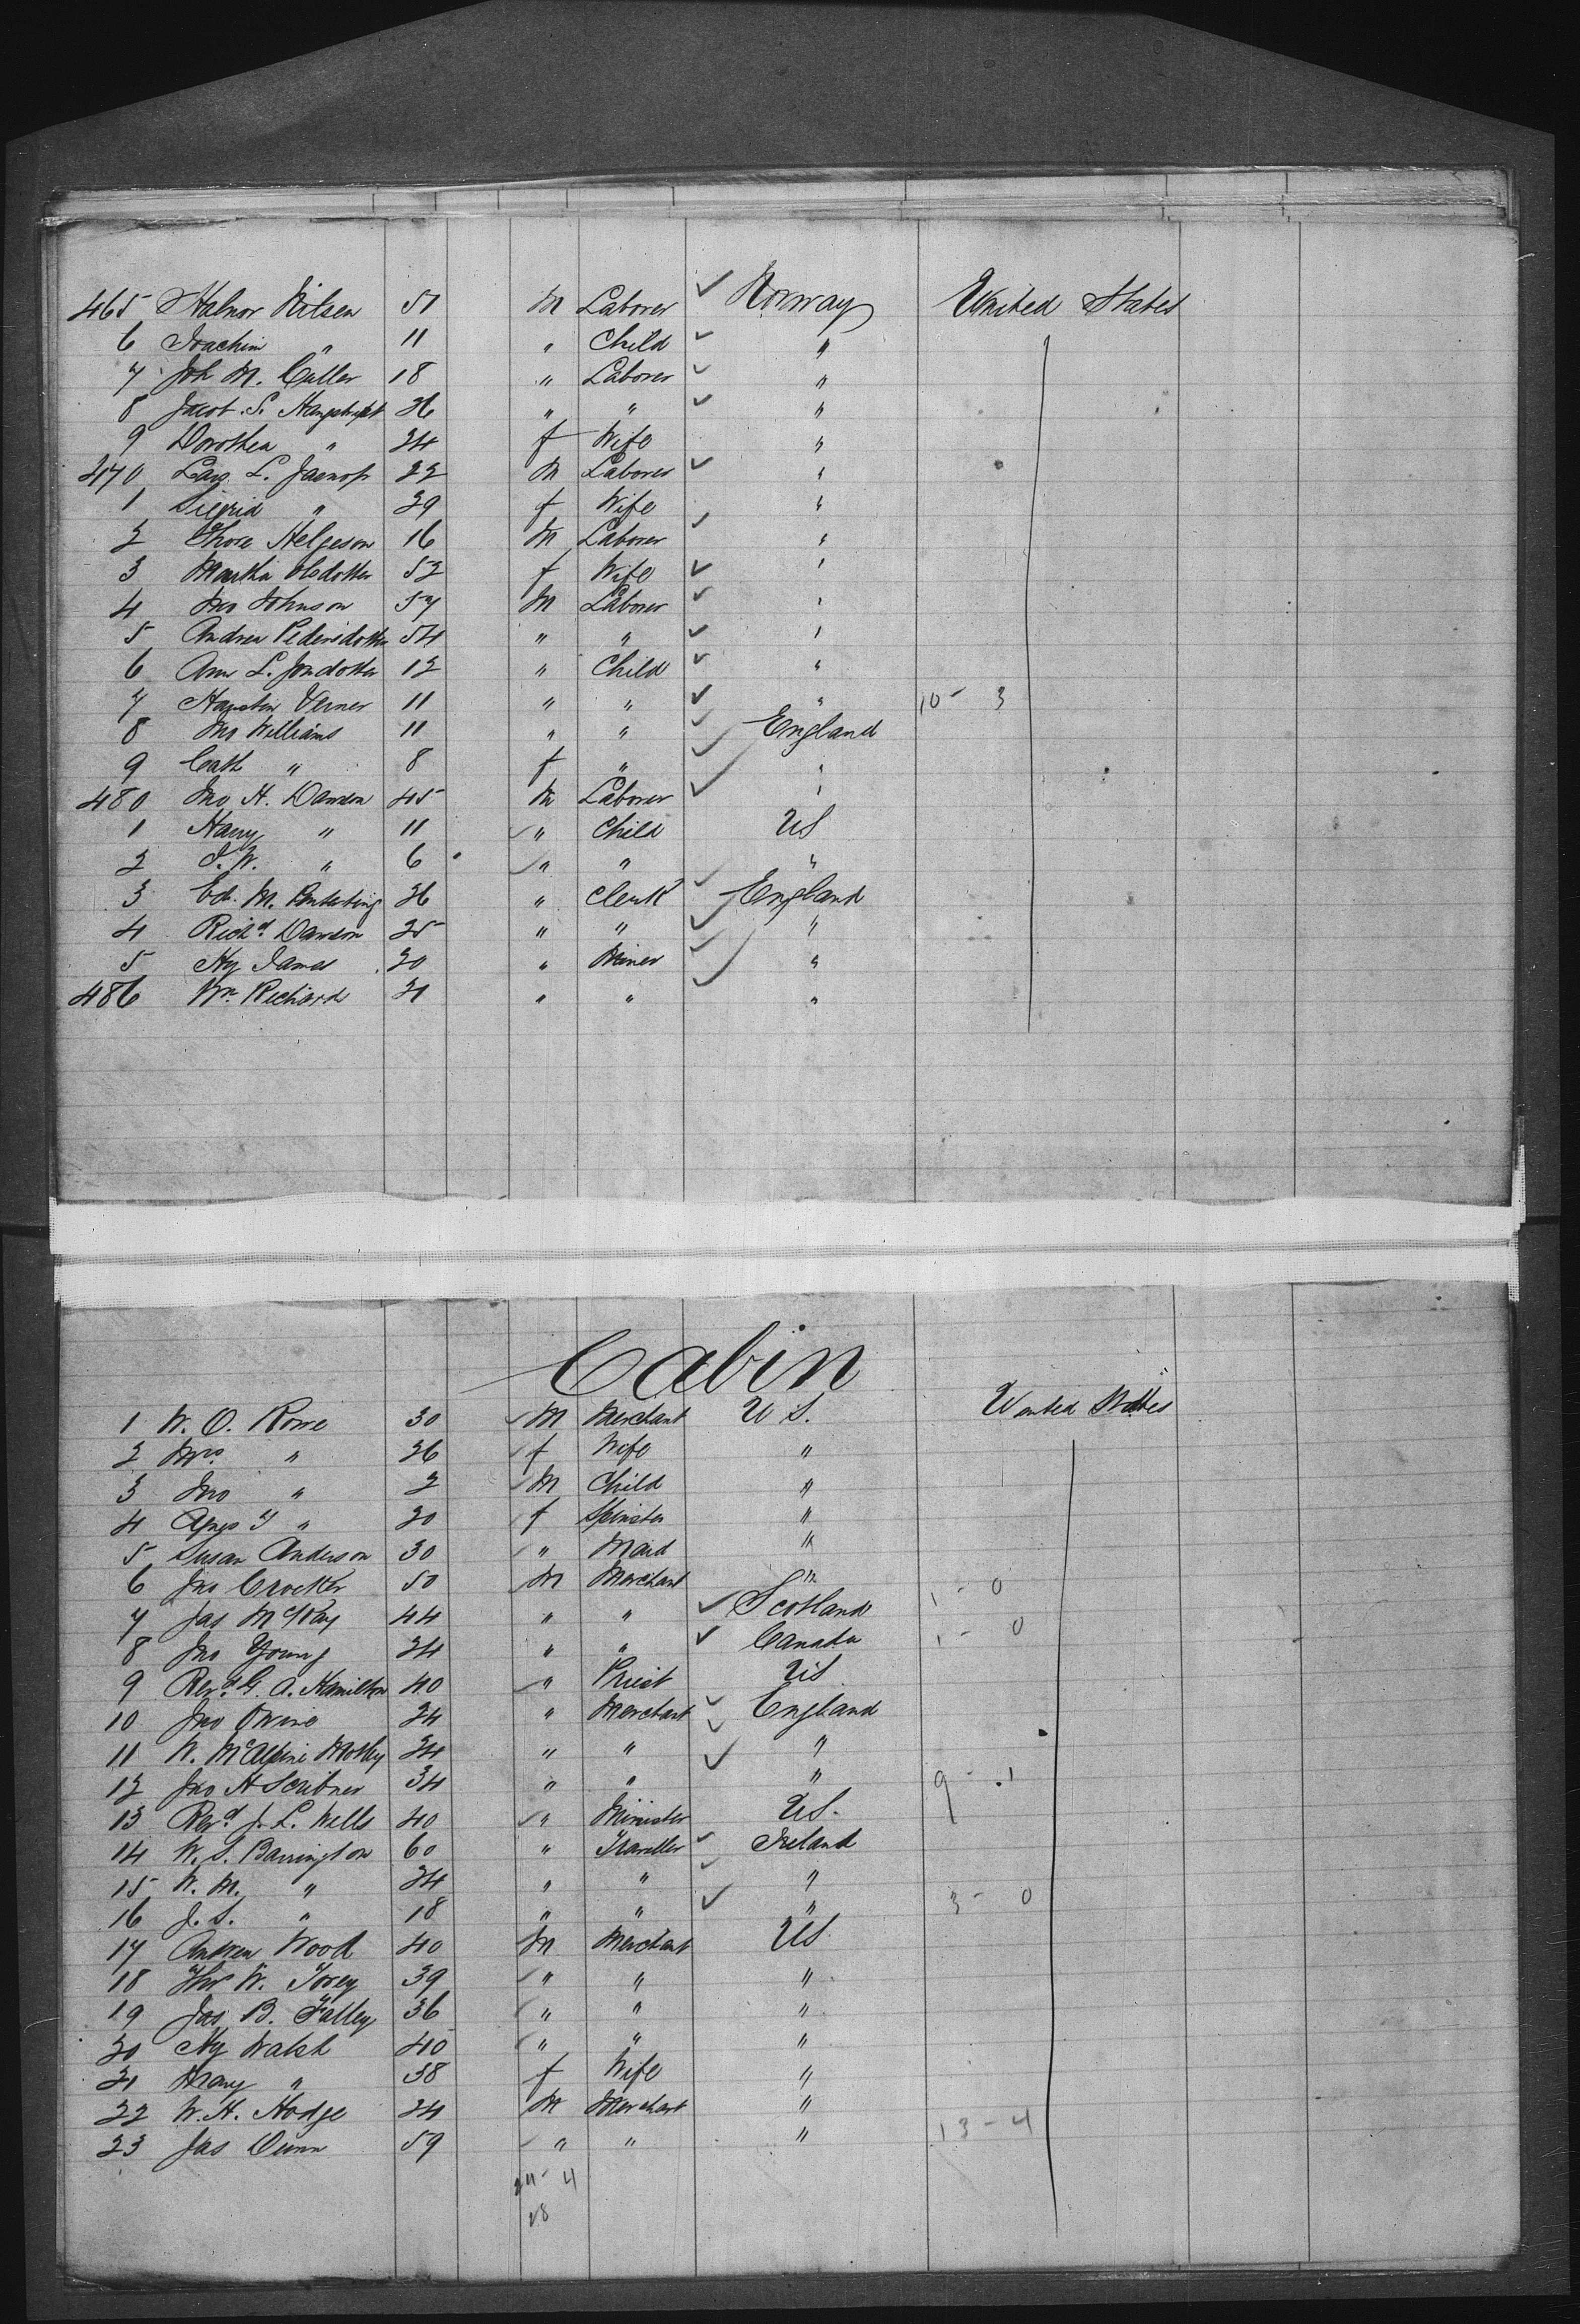 465 Halvor Nilsen 51 M Laborer ✓ Norway United States
6 Joachim " 11 " Child ✓ "
7 Joh M. Culler 18 " Laborer ✓ "
8 Jacob S. 26 " " ✓ "
9 Dorothea " 24 f Wife "
470 Lars L. 22 M Laborer ✓ "
1 Sigrid " 29 f Wife "
2 Thore Helgeson 16 M Laborer ✓ "
3 Martha Olsdotter 52 f Wife ✓ "
4 Jno Johnson 57 M Laborer ✓ "
5 Andrea Pedersdotter 54 " " ✓ "
6 Ann L. Jondotter 12 " Child ✓ "
7 Verner 11 " " ✓ " 10 - 3
8 Jno Williams 11 " " ✓ England
9 Cath " 8 f " ✓ "
480 Jno H. Dawson 45 M Laborer ✓ "
1 Harry " 11 " Child US
2 J. W. " 6 " " "
3 Ed. M. 26 " Clerk ✓ England
4 Richd Dawson 25 " " ✓ "
5 Hy James 20 " Miner ✓ "
486 Wm Richards 21 " " ✓ "
Cabin
1 W. O. Rowe 30 M Merchant U S. United States
2 Mrs " 26 f Wife "
3 Jno " 2 M Child "
4 Agnes Y " 20 f Spinster "
5 Susan Anderson 30 " Maid "
6 Jno Crocker 50 M Merchant "
7 Jas McKay 44 " " ✓ Scotland 1 - 0
8 Jno Young 24 " " ✓ Canada 1 - 0
9 Revd G. A. Hamilton 40 " Priest US
10 Jno 24 " Merchant ✓ England
11 W. McAlpine 24 " " ✓ "
12 Jno H Scribner 34 " " ✓ " 9 - 1
13 Revd J. L. Wells 40 " Minister US.
14 W. S. Barrington 60 " Traveller ✓ Ireland
15 W. M. " 24 " " ✓ "
16 J. S. " 18 " " ✓ " 3 - 0
17 Andrew Wood 40 M Merchant US
18 Thos W. Torey 39 " " "
19 Jas B. Falley 36 " " "
20 Hy Walsh 40 " " "
21 Mary " 38 f Wife "
22 W. H. Hodge 24 M Merchant "
23 Jas Dunn 59 " " " 13 - 4
24 - 4
28